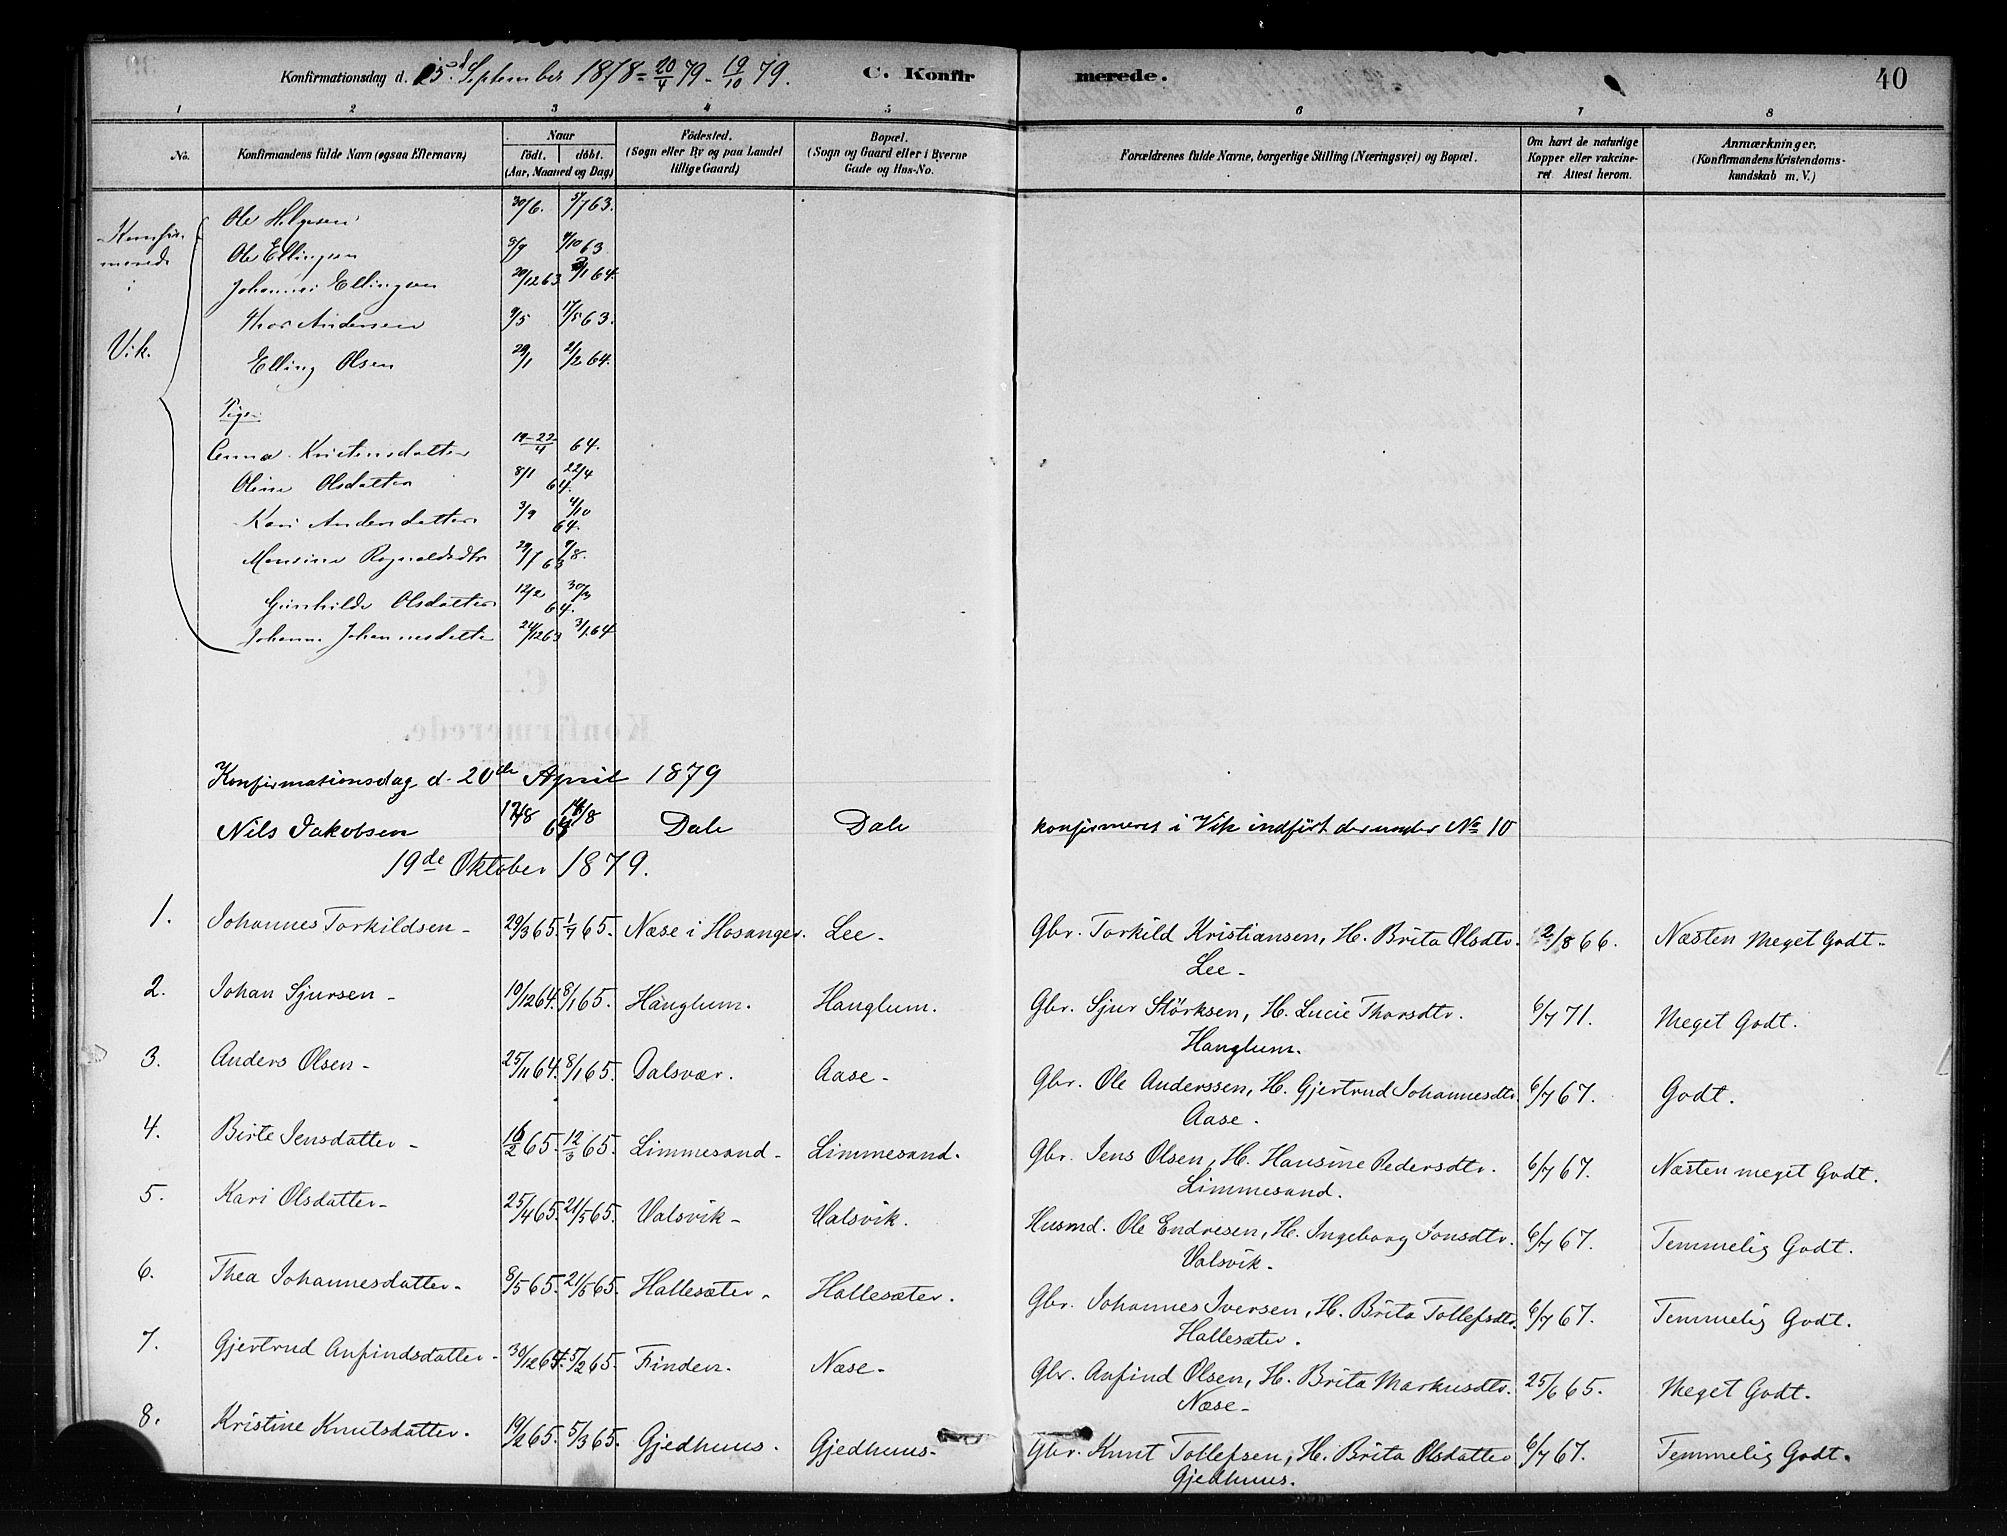 Konfirmationsdag d. 15de September 1878 = 20/4 79 - 19/10 79. C. Konfirmerede. 40
1 2 3 4 5 6 7 8
No. Konfirmandens fulde Navn (ogsaa Efternavn) Naar født. døbt. (Aar, Maaned og Dag) Fødested. (Sogn eller By og paa Landet tillige Gaard) Bopæl. (Sogn og Gaard eller i Byerne Gade og Hus-No. Forældrenes fulde Navne, borgerlige Stilling (Næringsvei) og Bopæl. Om havt de naturlige Kopper eller vakcineret. Attest herom. Anmærkninger. (Konfirmandens Kristendomskundskab m. V.)
Konfirmerede i Vik.
Ole Helgesen 30/6. 5/7 63.
Ole Ellingsen 3/9 4/10 63
Johannes Ellingsen 20/12 63 /1 64.
Thor Andersen 9/5 17/5 63.
Elling Olsen 29/1 21/2 64.
Piger
Anna Kristensdatter 19-22/4 64.
Oline Olsdatter 8/1 22/4 64.
Kari Andersdatter 3/9 4/10 64.
Monsine Ragnvaldsdtr 29/7 9/8. 63
Gunhilde Olsdatter 12/2 30/3 64.
Johanne Johannesdatter 24/12 63 3/1 64
Konfirmationsdag d. 20de April 1879
Nils Jakobsen Dale Dale konfirmeret i Vik indført der under No 10
19de Oktober 1879.
1. Johannes Torkildsen - 29/3 65. 1/7 65. Næse i Hosanger. Lee - Gbr. Torkild Kristiansen, H. Brita Olsdtr. 12/8 66. Næsten Meget Godt -
Lee -
2. Johan Sjursen - 10/12 64. 8/1 65. Hanglum. Hanglum. Gbr. Sjur Størksen, H. Lucie Thorsdtr. 6/7 71. Meget Godt.
Hanglum.
3. Anders Olsen - 25/11 64. 8/1 65. Dalsvær. Aase - Gbr. Ole Anderssen, H. Gjertrud Johannesdtr. 6/7 67. Godt.
Aase.
4. Birte Jensdatter - 16/2 65. 12/3 65. Limmesand - Limmesand. Gbr. Jens Olsen, H. Hansine Pedersdtr. 6/7 67. Næsten meget Godt.
Limmesand.
5. Kari Olsdatter - 25/4 65. 21/5 65. Valsvik - Valsvik. Husmd. Ole Endresen, H. Ingeborg Jonsdtr. 6/7 67. Temmelig Godt.
Valsvik -
6. Thea Johannesdatter - 8/5 65. 21/5 65. Hallesæter - Hallesæter. Gbr. Johannes Iversen, H. Brita Tollefsdtr. 6/7 67. Temmelig Godt.
Hallesæter.
7. Gjertrud Anfindsdatter - 30/12 64. 5/2 65. Finden. Næse - Gbr. Anfind Olsen, H. Brita Markusdtr. 25/6 65. Meget Godt.
Næse -
8. Kristine Knutsdatter. 19/2 65. 5/3 65. Gjedhuus. Gjedhuus - Gbr. Knut Tollefsen, H. Brita Olsdatter 6/7 67. Temmelig Godt.
Gjedhuus.